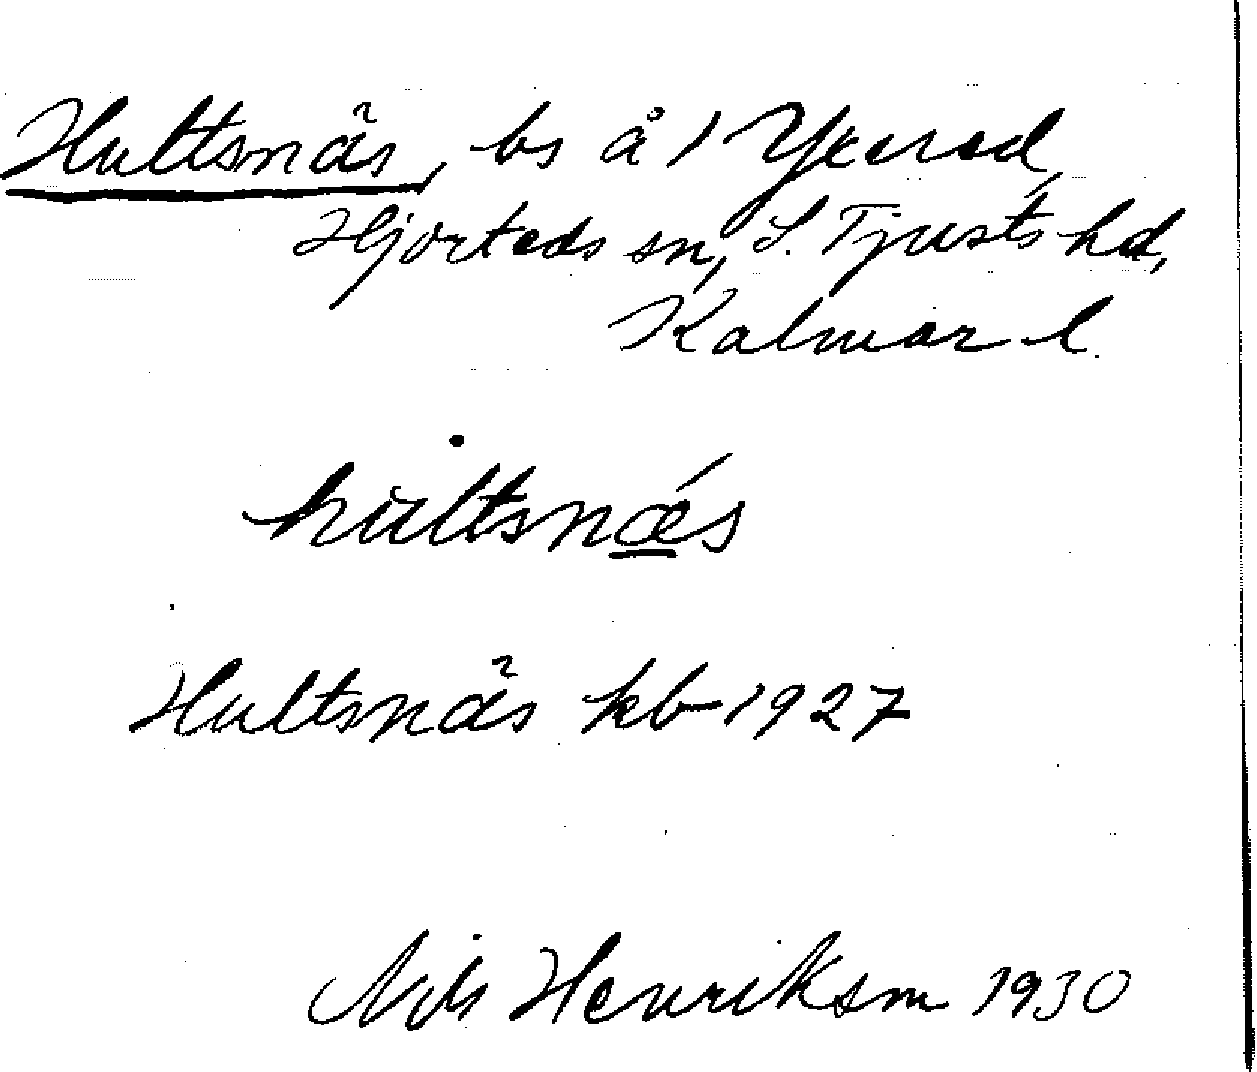 Hultsnäs, bs å 1 Yxered,
Hjorteds sn, S. Tjusts hd,
Kalmar l.
hu̇ltsnǽs
Hultsnäs kb 1927
Nils Henriksson 1930